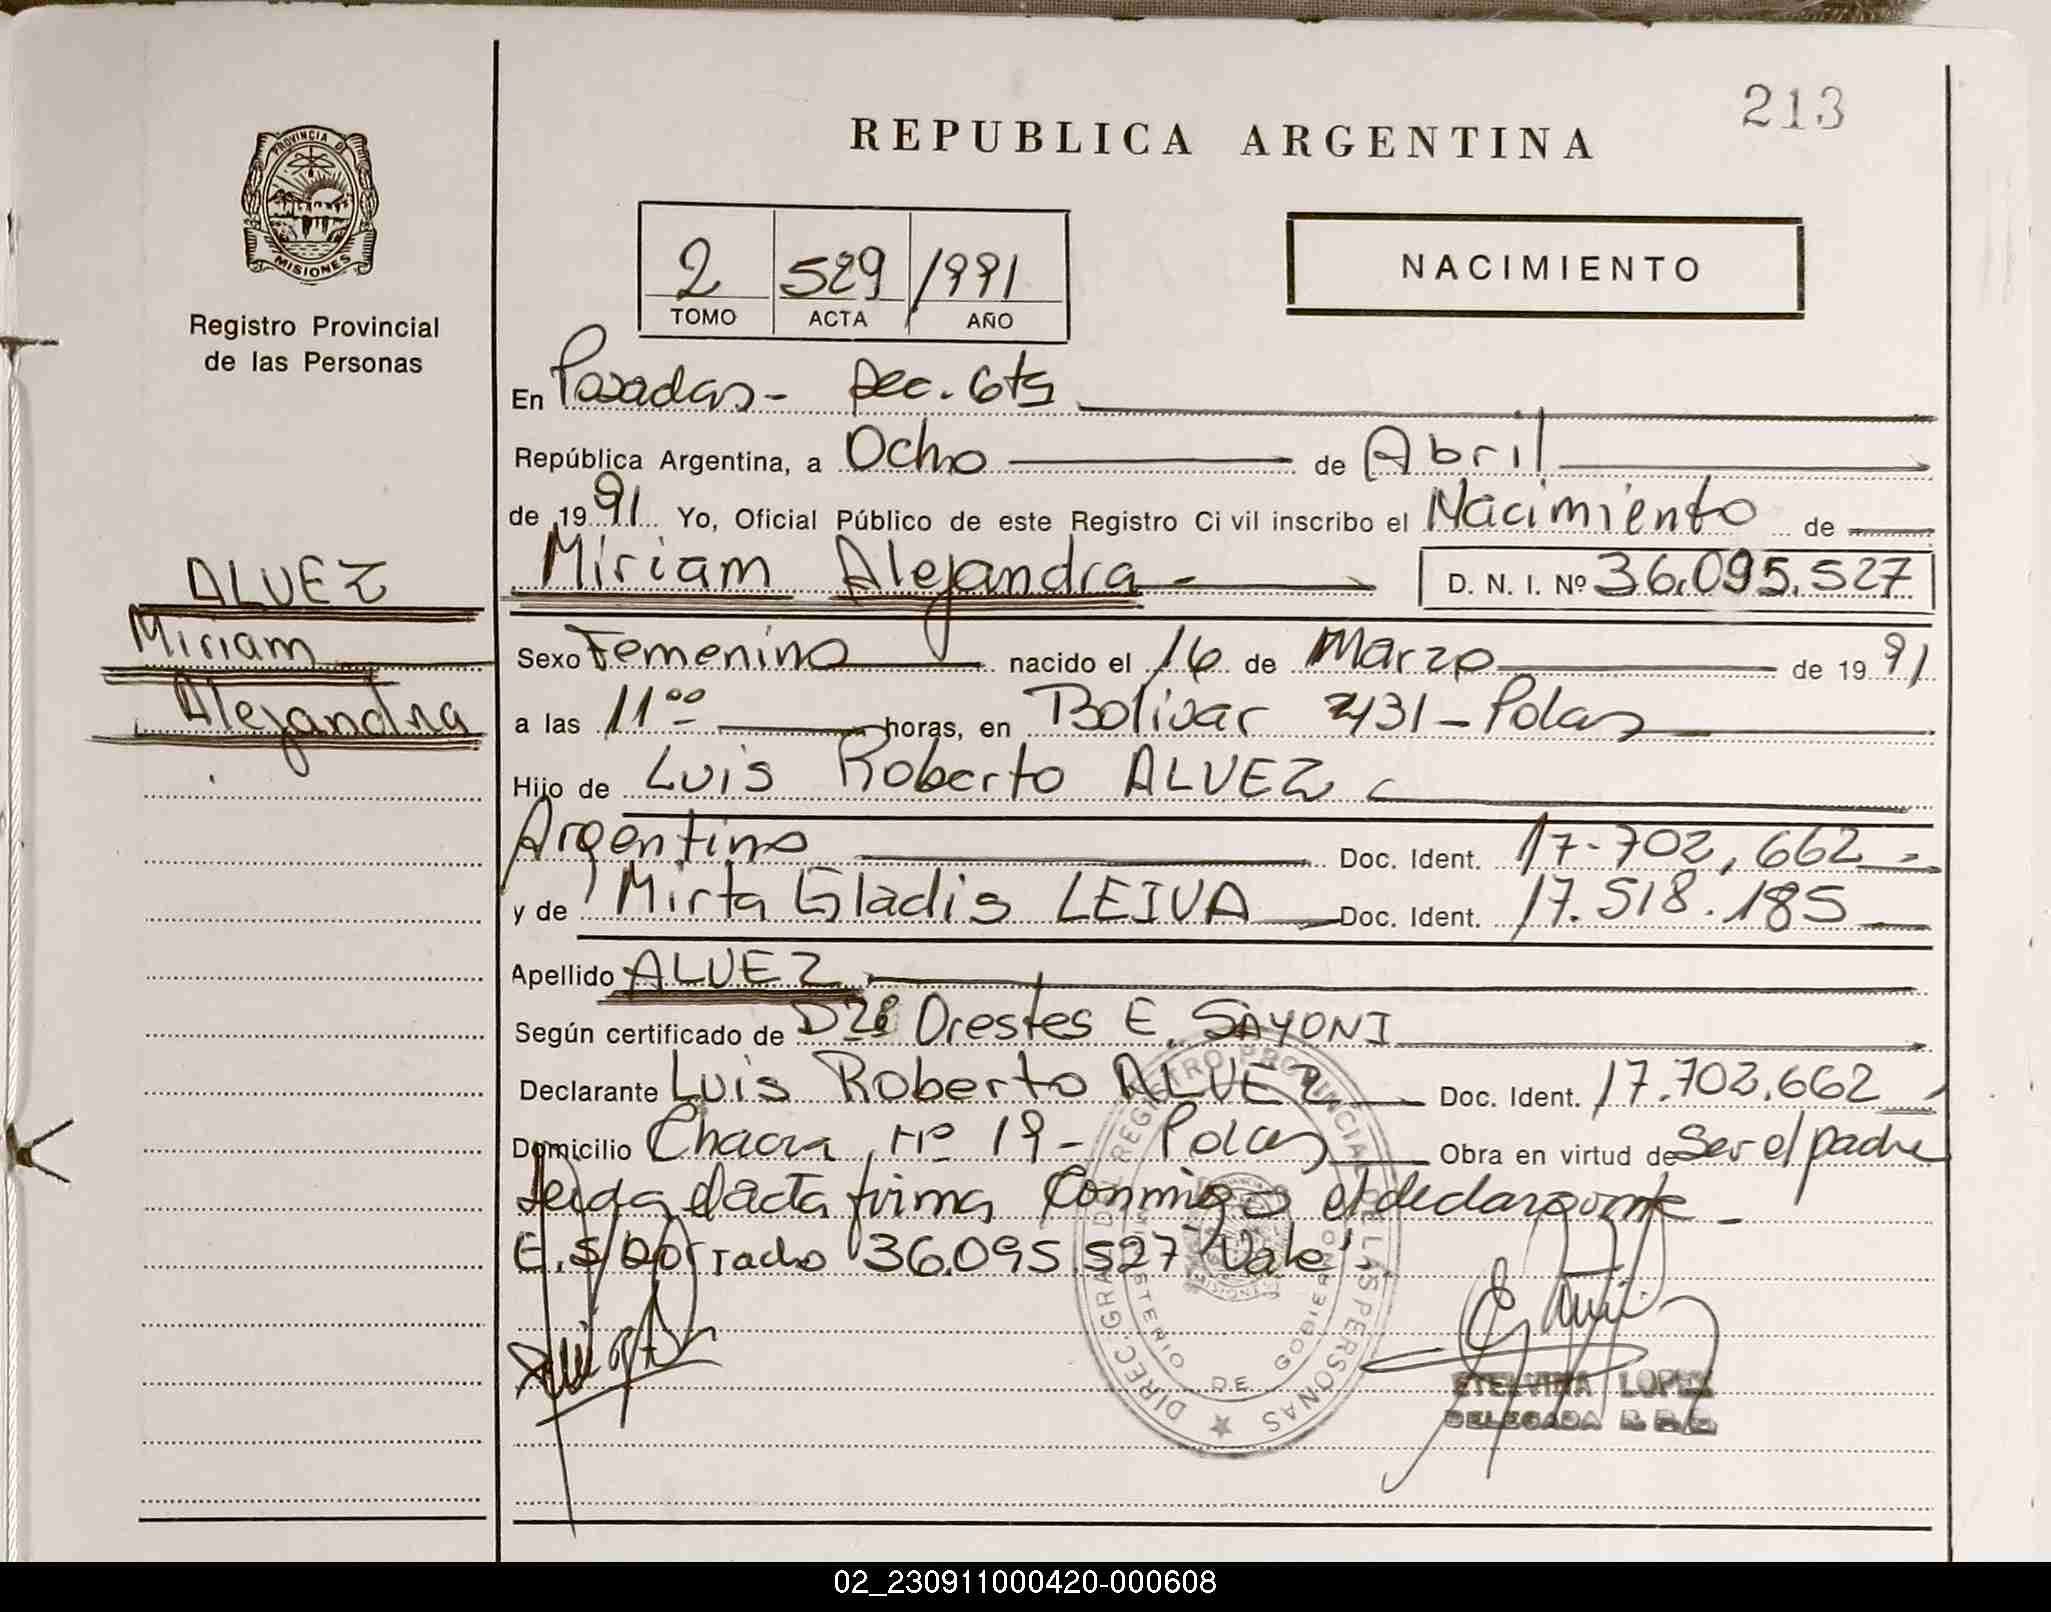 213
REPUBLICA ARGENTINA
PROVINCIA DE
MISIONES
Registro Provincial
de las Personas
2 529 1991
TOMO ACTA AÑO
NACIMIENTO
En Posadas - Sec. 6ta
República Argentina, a Ocho de Abril
de 1991 Yo, Oficial Público de este Registro Civil inscribo el Nacimiento de
Miriam Alejandra - D. N. I. Nº 36.095.527
ALVEZ
Miriam
Alejandra
Sexo Femenino nacido el 16 de Marzo de 1991
a las 11 00 horas, en Bolivar 2431 - Pdas
Hijo de Luis Roberto ALVEZ
Argentino Doc. Ident. 17-702,662
y de Mirta Gladis LEIVA Doc. Ident. 17.518.185
Apellido ALVEZ
Según certificado de Orestes E. SAYONI
Declarante Luis Roberto ALVEZ Doc. Ident. 17.702.662
Domicilio Chacra Nº 19 - Pdas Obra en virtud de Ser el padre
Leida el acta firma conmigo el declarante -
E.S/Borrado 36.095.527 "Vale".
DIREC. GRAL. DE REGISTRO PROVINCIAL DE LAS PERSONAS
MINISTERIO DE GOBIERNO
MISIONES
ETELVINA LOPEZ
DELEGADA R.P.P.
02_230911000420-000608